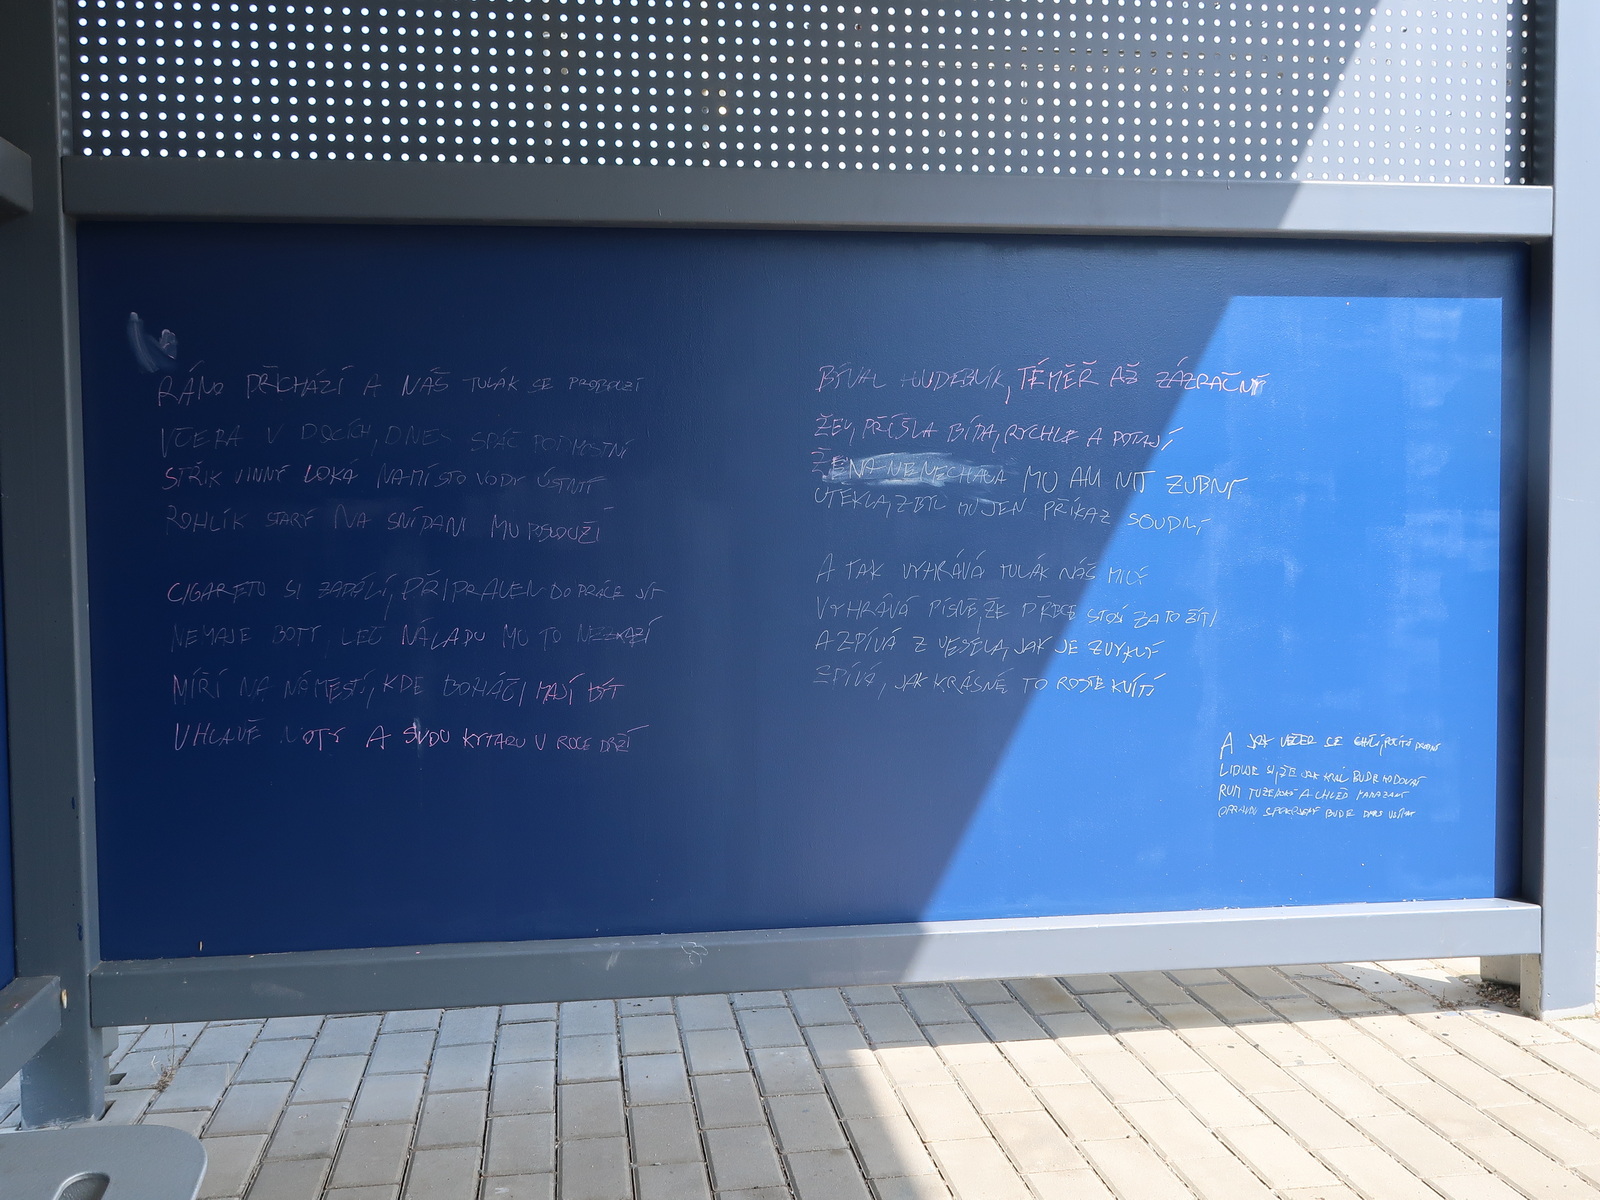 RÁNO PŘICHÁZÍ A NÁŠ TULÁK SE PROBOUZÍ
VČERA V DOCÍCH, DNES SPÁČ POD MOSTNÍ
STŘIK VINNÝ LOKÁ NAMÍSTO VODY ÚSTNÍ
ROHLÍK STARÝ NA SNÍDANI MU POSLOUŽÍ
CIGARETU SI ZAPÁLÍ, PŘIPRAVEN DO PRÁCE JÍT
NEMAJE BOTY, LEČ NÁLADU MU TO NEZKAZÍ
MÍŘÍ NA NÁMĚSTÍ, KDE BOHÁČI MAJÍ BÝT
V HLAVĚ NOTY A SVOU KYTARU V RUCE DRŽÍ
BÝVAL HUDEBNÍK, TÉMĚŘ AŽ ZÁZRAČNÝ
ŽEL, PŘIŠLA BÍDA, RYCHLE A POTAJÍ
ŽENA NENECHALA MU ANI NIT ZUBNÍ
UTEKLA, ZBYL MU JEN PŘÍKAZ SOUDNÍ
A TAK VYHRÁVÁ TULÁK NÁŠ MILÝ
VYHRÁVÁ PÍSNĚ, ŽE PŘECE STOJÍ ZA TO ŽÍTI
A ZPÍVÁ Z VESELA, JAK JE ZVYKLÝ
ZPÍVÁ, JAK KRÁSNÉ TO ROSTE KVÍTÍ
A JAK VEČER SE CHÝLÍ, POČÍTÁ
SI, ŽE JAK KRÁL BUDE HODOVAT
RUM TUZEMSKÝ A CHLÉB
BUDE